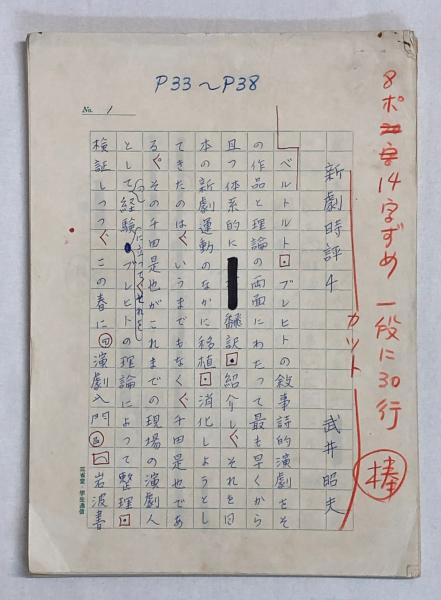 P33〜P38
8ポ 14字ずめ 一段に30行
棒
カット
No. 1
新劇時評4
武井昭夫
ベルトルト・ブレヒトの敘事詩的演劇をそ
の作品と理論の両面にわたって最も早くから
且つ体系的に翻訳・紹介し、それを日
本の新劇運動のなかに移植・消化しようとし
てきたのは、いうまでもなく、千田是也であ
る。その千田是也がこれまでの現場の演劇人
としての経験にたってそれをブレヒトの理論によって整理・
検証しつつ、この春に『演劇入門』(岩波書
三省堂 学生通信